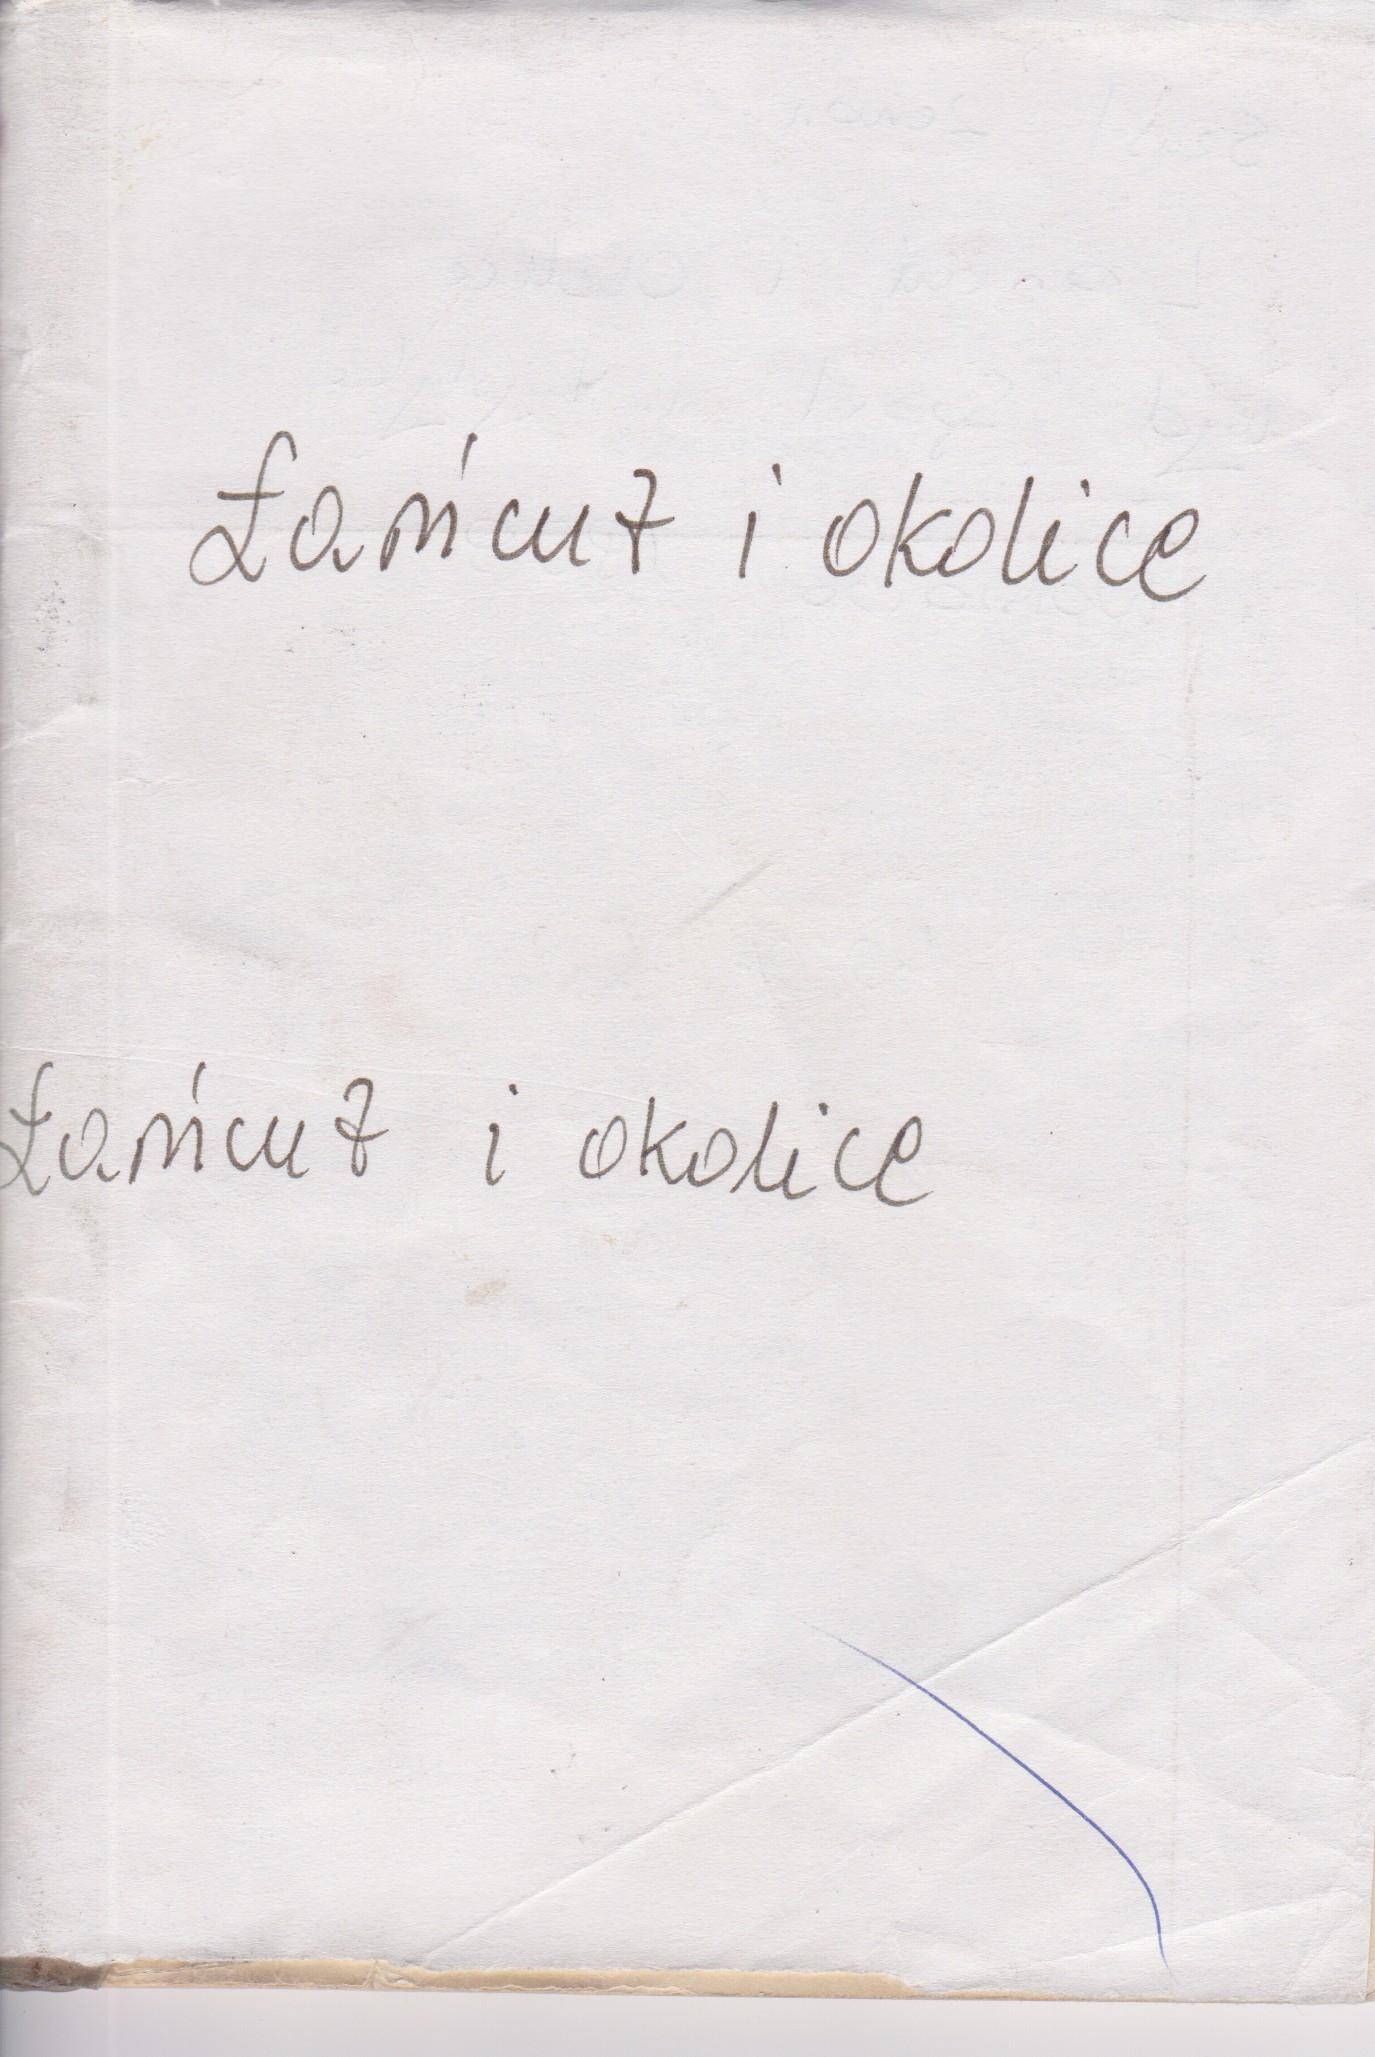 Łańcut i okolice
Łańcut i okolice